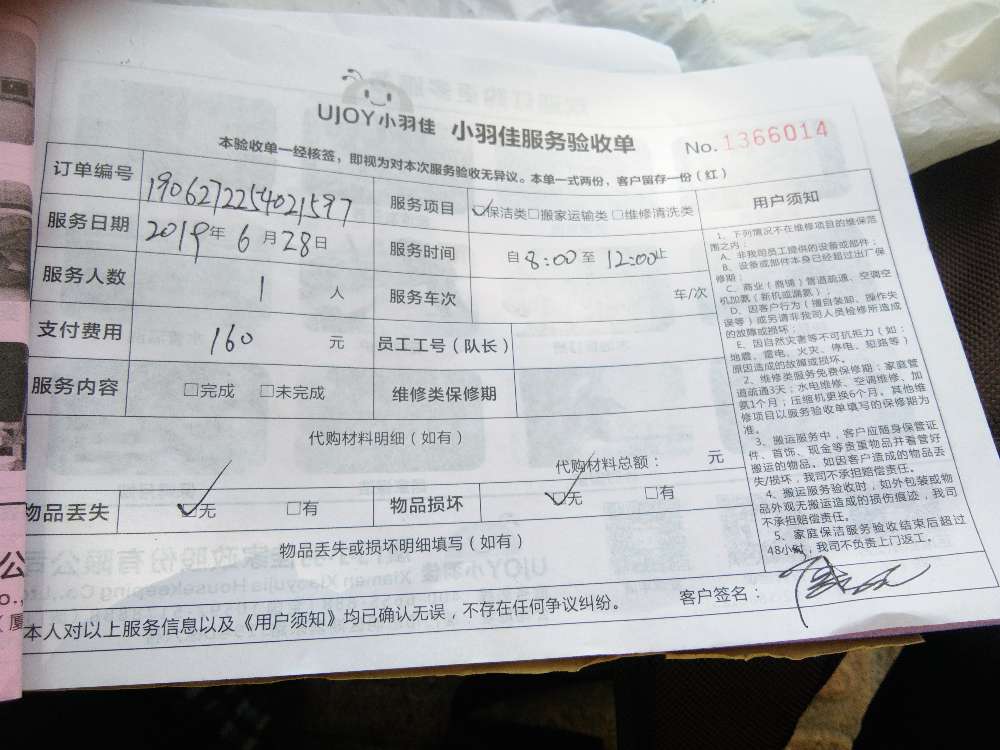 UJOY小羽佳 小羽佳服务验收单
No.1366014
本验收单一经核签，即视为对本次服务验收无异议。本单一式两份，客户留存一份（红）
订单编号 1906272254021597 服务项目 保洁类□搬家运输类□维修清洗类
服务日期 2019年6月28日 服务时间 自8:00至12:00止
服务人数 1 人 服务车次 车/次
支付费用 160 元 员工工号（队长）
服务内容 □完成 □未完成 维修类保修期
代购材料明细（如有）
代购材料总额： 元
物品丢失 无 □有 物品损坏 无 □有
物品丢失或损坏明细填写（如有）
本人对以上服务信息以及《用户须知》均已确认无误，不存在任何争议纠纷。
客户签名：
用户须知
1、下列情况不在维修项目的维保范
围之内：
A、非我司员工提供的设备或部件；
B、设备或部件本身已经超过出厂保
修期；
C、商业（商铺）管道疏通、空调空
机加氨（新机或漏氨）；
D、因客户行为（擅自装卸、操作失
误等）或另请非我司人员检修所造成
的故障或损坏；
E、因自然灾害等不可抗拒力（如：
地震、雷电、火灾、停电、短路等）
原因造成的故障或损坏。
2、维修类服务免费保修期：家庭管
道疏通3天；水电维修、空调维修、加
氨1个月；压缩机更换6个月。其他维
修项目以服务验收单填写的保修期为
准。
3、搬运服务中，客户应随身保管证
件、首饰、现金等贵重物品并看管好
搬运的物品。如因客户造成的物品丢
失/损坏，我司不承担赔偿责任。
4、搬运服务验收时，如外包装或物
品外观无搬运造成的损伤痕迹，我司
不承担赔偿责任。
5、家庭保洁服务验收结束后超过
48小时，我司不负责上门返工。